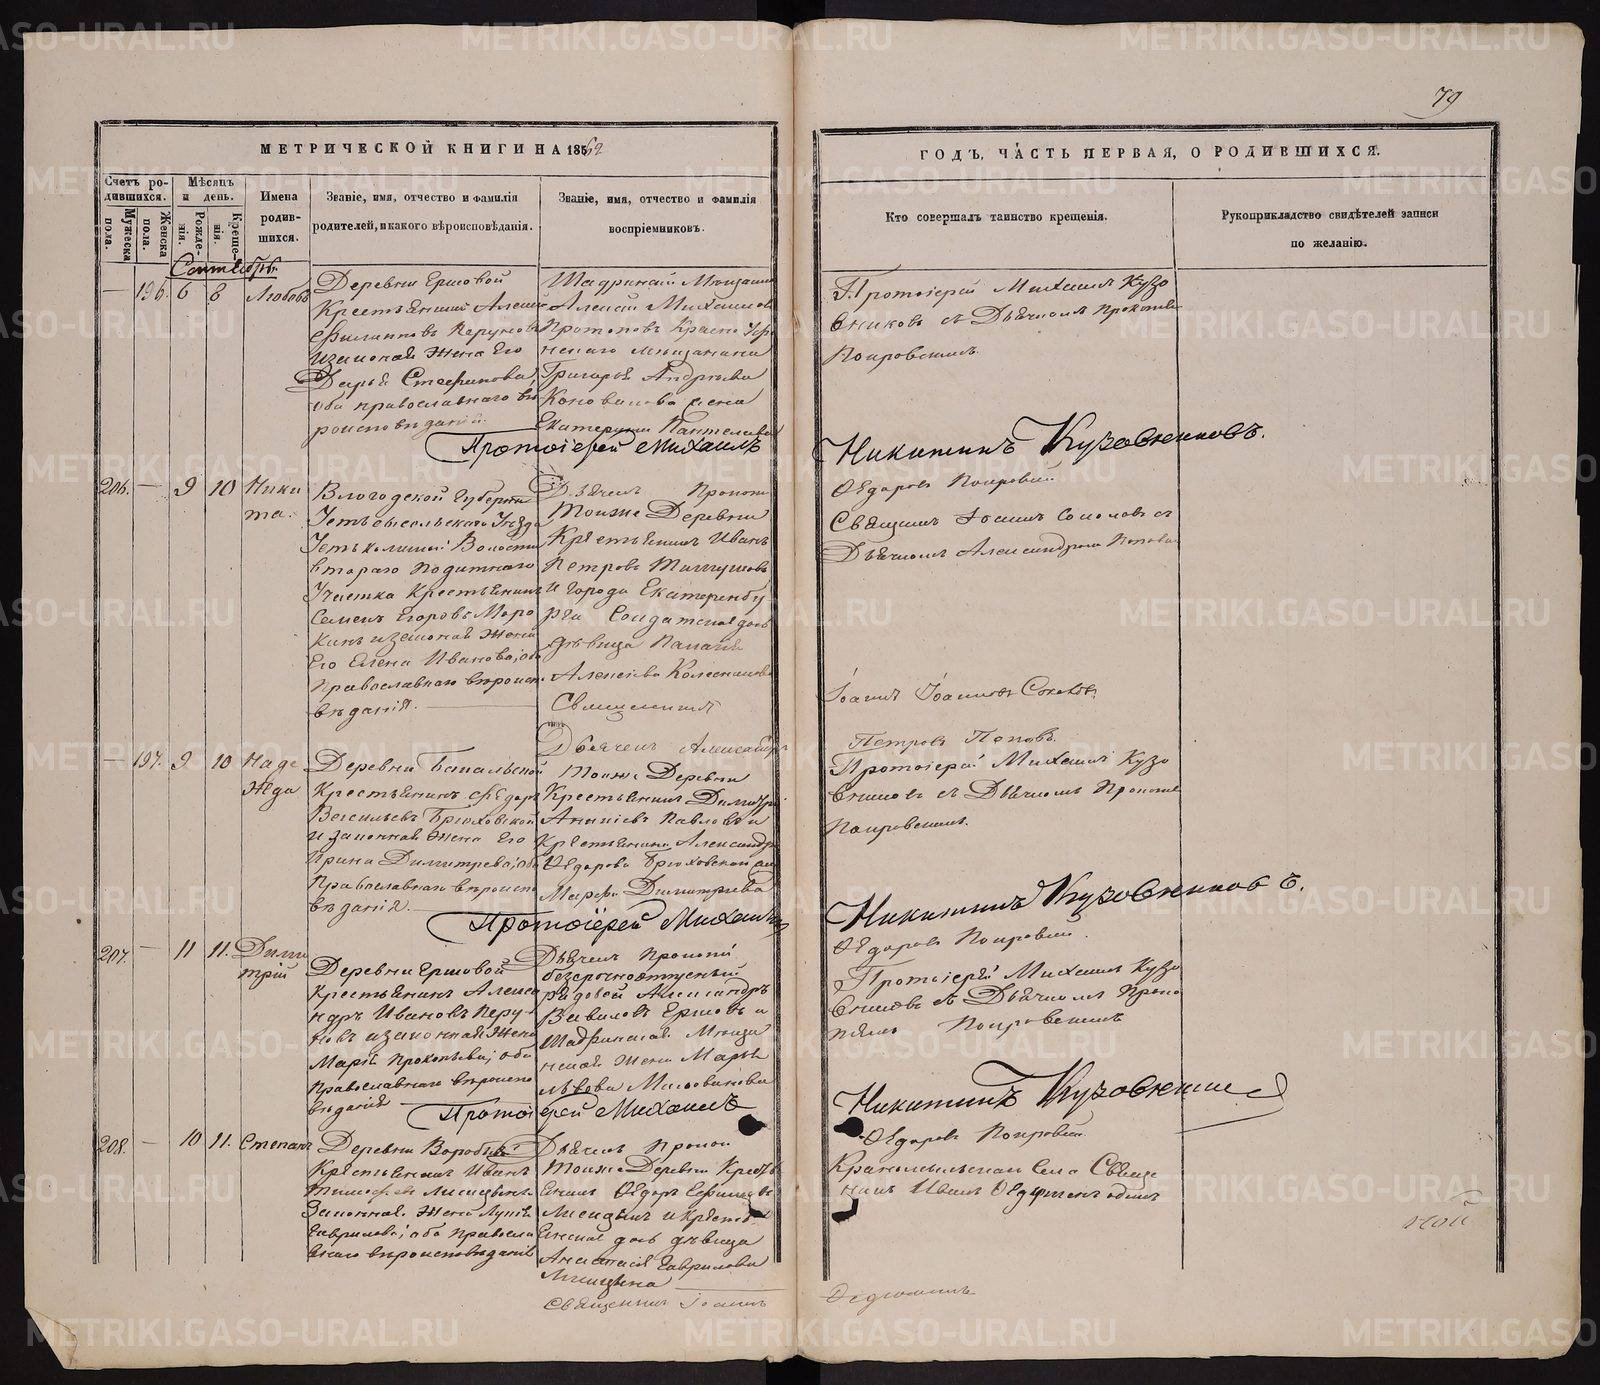 79
МЕТРИЧЕСКОЙ КНИГИ НА 1862
ГОДЪ, ЧАСТЬ ПЕРВАЯ, О РОДИВШИХСЯ.
Счетъ родившихся.
Мужеска пола.
Женска пола.
Мѣсяцъ и день.
Рожденія.
Крещенія.
Имена родившихся.
Званіе, имя, отчество и фамилія родителей, и какого вѣроисповѣданія.
Званіе, имя, отчество и фамилія воспріемниковъ.
Кто совершалъ таинство крещенія.
Рукоприкладство свидѣтелей записи по желанію.
Сентябрь.
— 196. 6 8 Любовь
Деревни Ершовой
Крестьянинъ Алексѣй
Филипповъ Перуновъ
и законная жена его
Дарья Стефанова,
оба православнаго вѣ
роисповѣданія.
Шадринскій Мѣщанинъ
Алексѣй Михаиловъ
Протоповъ Красноуфи
мскаго мѣщанина
Григорья Андреева
Коновалова жена
Екатерина Пантелеева
Протоіерей Михаилъ
Протоіерей Михаилъ Кузо
вниковъ съ Дьячкомъ Прокопіем
Покровскимъ.
Никитинъ Кузовниковъ.
Ѳедоровъ Покровскій
206. — 9 10 Ники
та.
Вологодской Губерніи
Устьсысольскаго Уѣзда
Волости
втораго податнаго
Участка Крестьянинъ
Семенъ Егоровъ Моро
кинъ и законная жена
его Елена Иванова, оба
православнаго вѣроиспо
вѣданія.
Дьячекъ Прокопій
Тоиже Деревни
Крестьянинъ Иванъ
Петровъ
и Города Екатеринбу
рга Солдатская дочь
дѣвица
Алексѣева Колесникова
Священникъ
Дьячекъ Александръ
Священникъ Іоаннъ Соколовъ съ
Дьячкомъ Александромъ Поповымъ
Іоаннъ Іоанновъ Соколовъ.
Петровъ Поповъ.
— 197. 9 10 Наде
жда
Деревни
Крестьянинъ Ѳедоръ
Васильевъ Брюховской
и законная жена его
Ирина Димитрева, оба
Православнаго вѣроиспо
вѣданія.
Тоиже Деревни
Крестьянинъ Димитрій
Ананіевъ Павловъ и
Крестьянина Александра
Ѳедорова Брюховскаго
Марфа Димитріева
Протоіерей Михаилъ
Протоіерей Михаилъ Кузо
вниковъ съ Дьячкомъ Прокопіем
Покровскимъ.
Никитинъ Кузовниковъ.
Ѳедоровъ Покровскій.
207. — 11 11. Дими
трій
Деревни Ершовой
Крестьянинъ Алекса
ндръ Ивановъ Перу
новъ и законная жена
Марія Прокопьева, оба
православнаго вѣроиспо
вѣданія
Дьячекъ Прокопій
безсрочноотпускный
рядовой Александръ
Вавиловъ Ершовъ и
Шадринская Мѣща
нская жена Марья
Львова Миловинова
Протоіерей Михаилъ
Протоіерей Михаилъ Кузо
вниковъ съ Дьячкомъ Проко
піемъ Покровскимъ
Никитинъ Кузовниковъ
Ѳедоровъ Покровскій.
208. — 10 11. Степанъ
Деревни
Крестьянинъ Иванъ
Тимофеевъ Лисицынъ
Законная жена
Гаврилова; оба православ
наго вѣроисповѣданія
Дьячекъ Прокопій
Тоиже Деревни Кресть
янинъ Ѳедоръ
Лисицынъ и кресть
янская дочь дѣвица
Анастасія Гаврилова
Лисицына
Священникъ Іоаннъ
Села Священ
никъ Иванъ